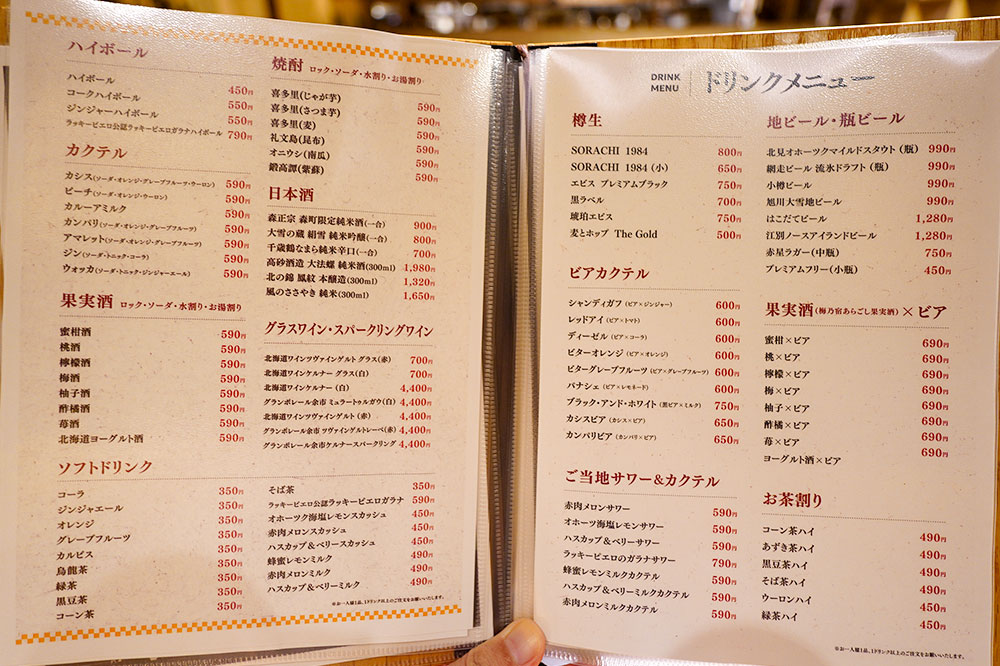 ハイボール
ハイボール 450円
コークハイボール 550円
ジンジャーハイボール 550円
ラッキーピエロ公認ラッキーピエロガラナハイボール 790円
カクテル
カシス(ソーダ・オレンジ・グレープフルーツ・ウーロン) 590円
ピーチ(ソーダ・オレンジ・ウーロン) 590円
カルーアミルク 590円
カンパリ(ソーダ・オレンジ・グレープフルーツ) 590円
アマレット(ソーダ・オレンジ・グレープフルーツ) 590円
ジン(ソーダ・トニック・コーラ) 590円
ウォッカ(ソーダ・トニック・ジンジャーエール) 590円
果実酒 ロック・ソーダ・水割り・お湯割り
蜜柑酒 590円
桃酒 590円
檸檬酒 590円
梅酒 590円
柚子酒 590円
酢橘酒 590円
苺酒 590円
北海道ヨーグルト酒 590円
ソフトドリンク
コーラ 350円
ジンジャエール 350円
オレンジ 350円
グレープフルーツ 350円
カルピス 350円
烏龍茶 350円
緑茶 350円
黒豆茶 350円
コーン茶 350円
焼酎 ロック・ソーダ・水割り・お湯割り
喜多里(じゃが芋) 590円
喜多里(さつま芋) 590円
喜多里(麦) 590円
礼文島(昆布) 590円
オニウシ(南瓜) 590円
鍛高譚(紫蘇) 590円
日本酒
森正宗 森町限定純米酒(一合) 900円
大雪の蔵 絹雪 純米吟醸(一合) 800円
千歳鶴なまら純米辛口(一合) 700円
高砂酒造 大法螺 純米酒(300ml) 1,980円
北の錦 鳳紋 本醸造(300ml) 1,320円
風のささやき 純米(300ml) 1,650円
グラスワイン・スパークリングワイン
北海道ワインツヴァイゲルト グラス(赤) 700円
北海道ワインケルナー グラス(白) 700円
北海道ワインケルナー (白) 4,400円
グランポレール余市 ミュラートゥルガウ(白) 4,400円
北海道ワインツヴァイゲルト (赤) 4,400円
グランポレール余市 ツヴァイゲルトレーベ(赤) 4,400円
グランポレール余市ケルナースパークリング 4,400円
そば茶 350円
ラッキーピエロ公認ラッキーピエロガラナ 590円
オホーツク海塩レモンスカッシュ 450円
赤肉メロンスカッシュ 450円
ハスカップ&ベリースカッシュ 450円
蜂蜜レモンミルク 490円
赤肉メロンミルク 490円
ハスカップ&ベリーミルク 490円
※お一人様1品、1ドリンク以上のご注文をお願いいたします。
DRINK MENU ドリンクメニュー
樽生
SORACHI 1984 800円
SORACHI 1984 (小) 650円
エビス プレミアムブラック 750円
黒ラベル 700円
琥珀エビス 750円
麦とホップ The Gold 500円
ビアカクテル
シャンディガフ(ビア×ジンジャー) 600円
レッドアイ(ビア×トマト) 600円
ディーゼル(ビア×コーラ) 600円
ビターオレンジ(ビア×オレンジ) 600円
ビターグレープフルーツ(ビア×グレープフルーツ) 600円
パナシェ(ビア×レモネード) 600円
ブラック・アンド・ホワイト(黒ビア×ミルク) 750円
カシスビア(カシス×ビア) 650円
カンパリビア(カンパリ×ビア) 650円
ご当地サワー&カクテル
赤肉メロンサワー 590円
オホーツク海塩レモンサワー 590円
ハスカップ&ベリーサワー 590円
ラッキーピエロのガラナサワー 790円
蜂蜜レモンミルクカクテル 590円
ハスカップ&ベリーミルクカクテル 590円
赤肉メロンミルクカクテル 590円
地ビール・瓶ビール
北見オホーツクマイルドスタウト (瓶) 990円
網走ビール 流氷ドラフト (瓶) 990円
小樽ビール 990円
旭川大雪地ビール 990円
はこだてビール 1,280円
江別ノースアイランドビール 1,280円
赤星ラガー(中瓶) 750円
プレミアムフリー(小瓶) 450円
果実酒(梅乃宿あらごし果実酒)×ビア
蜜柑×ビア 690円
桃×ビア 690円
檸檬×ビア 690円
梅×ビア 690円
柚子×ビア 690円
酢橘×ビア 690円
苺×ビア 690円
ヨーグルト酒×ビア 690円
お茶割り
コーン茶ハイ 490円
あずき茶ハイ 490円
黒豆茶ハイ 490円
そば茶ハイ 490円
ウーロンハイ 450円
緑茶ハイ 450円
※お一人様1品、1ドリンク以上のご注文をお願いいたします。